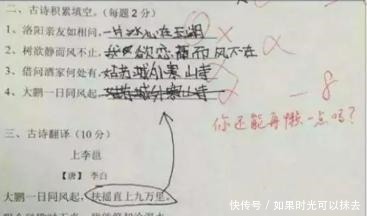 二、古诗积累填空。(每题2分)
1、洛阳亲友如相问,一片冰心在玉湖
2、树欲静而风不止,我欲恋而风不在
3、借问酒家何处有,姑苏城外寒山寺
4、大鹏一日同风起,姑苏城外寒山寺
-8
你还能再懒一点吗?
三、古诗翻译(10分)
上李邕
【唐】 李白
大鹏一日同风起,扶摇直上九万里。
快传号 / 如果时光可以抹去